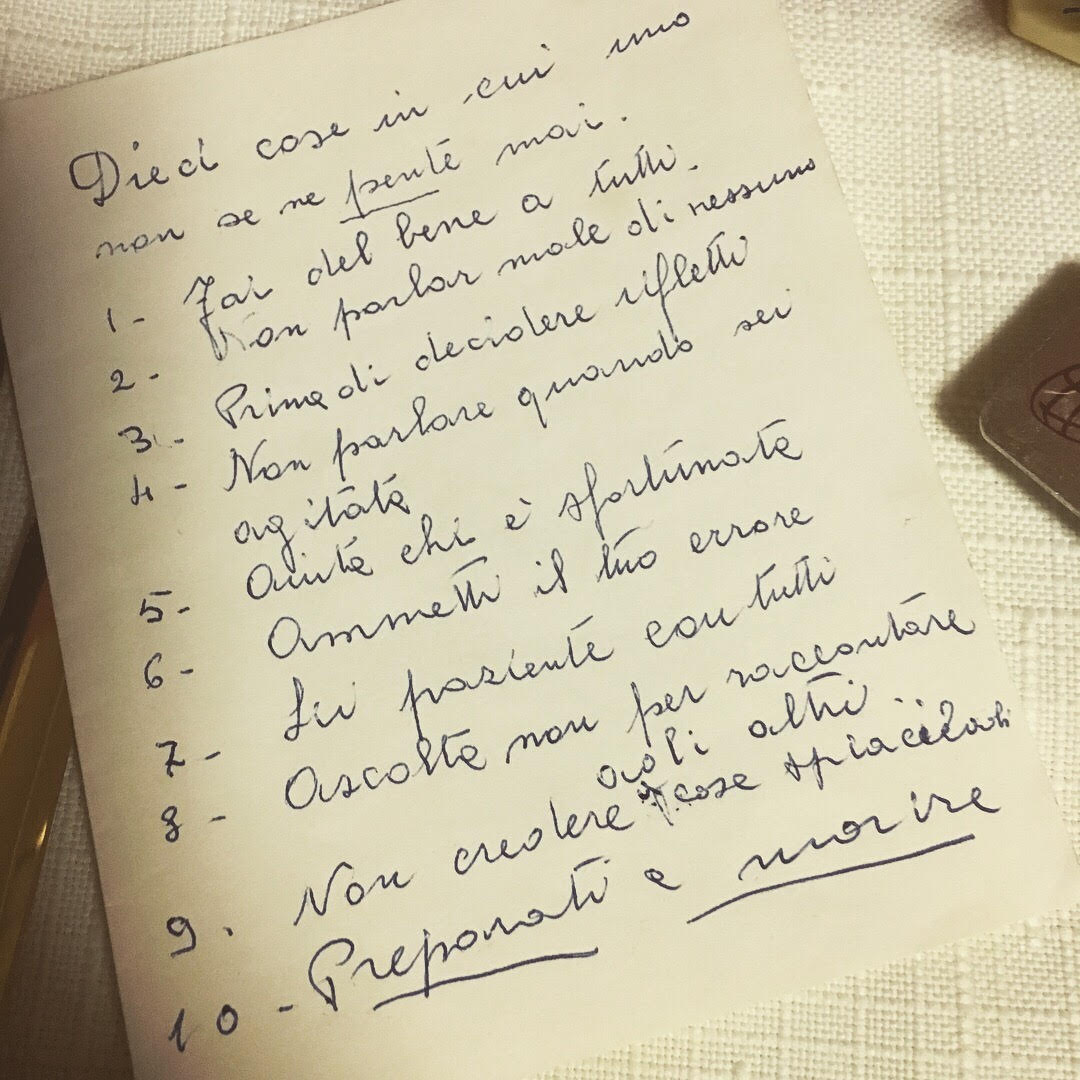 Dieci cose in cui uno
non se ne pente mai.
1- Far del bene a tutti.
2- Non parlar male di nessuno
3.- Prima di decidere rifletti
4- Non parlare quando sei
agitato
5- Aiuta chi è sfortunato
6- Ammetti il tuo errore
7- Sii paziente con tutti
8- Ascolta non per raccontare
agli altri
9. Non credere cose
10- Preparati a morire